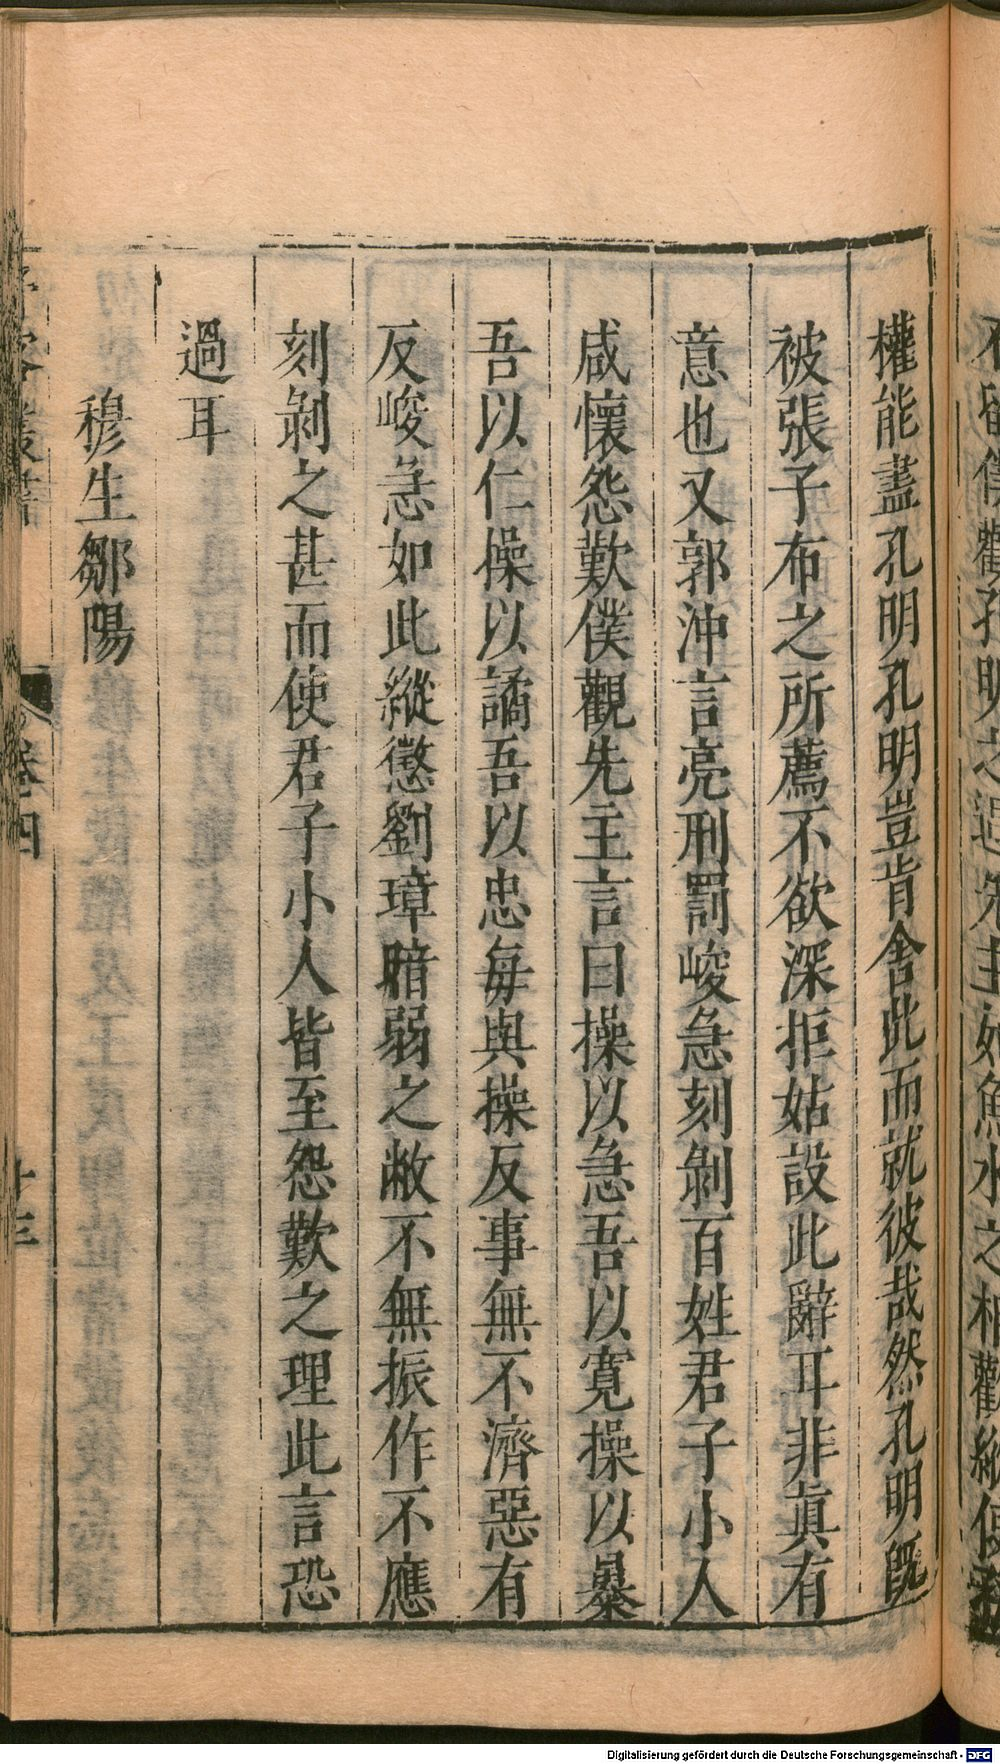 權能盡孔明孔明豈肯舍此而就彼哉然孔明旣
被張子布之所薦不欲深拒姑設此辭耳非眞有
意也又郭沖言亮刑罰峻急刻剝百姓君子小人
咸懷怨歎僕觀先主言曰操以急吾以寬操以暴
吾以仁操以譎吾以忠每與操反事無不濟惡有
反峻急如此縱懲劉璋暗弱之敝不無振作不應
刻剝之甚而使君子小人皆至怨歎之理此言恐
過耳
穆生鄒陽
卷四
十三
Digitalisierung gefördert durch die Deutsche Forschungsgemeinschaft - DFG